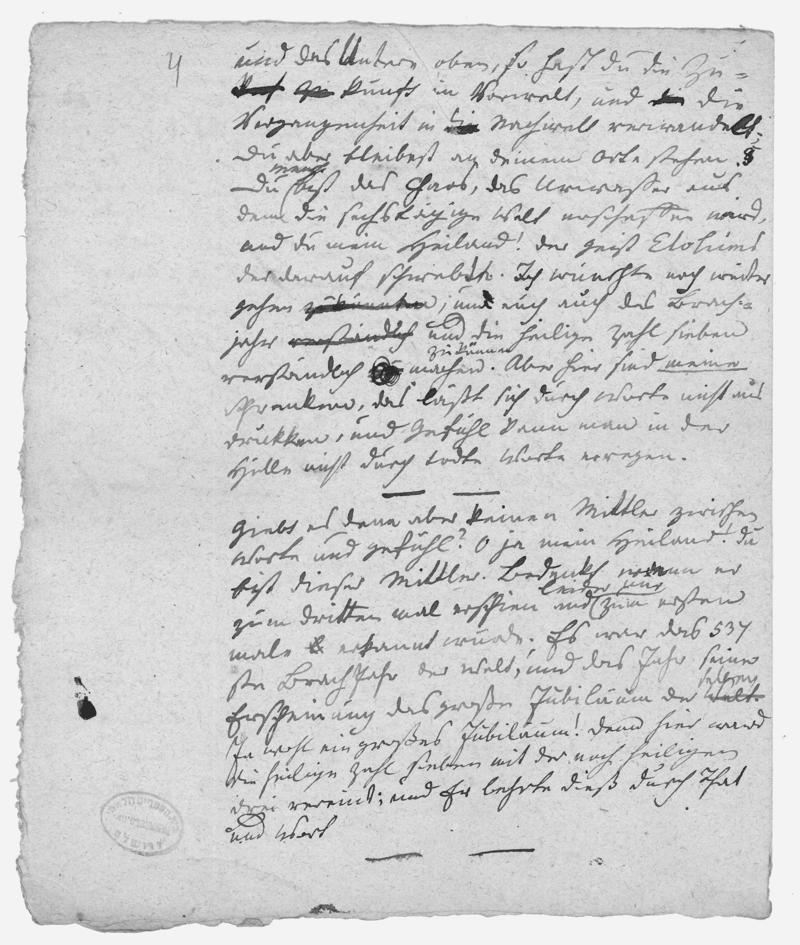 4
und das Untere oben, so hast du die Zu-
kunft in Vorwelt, und die
Vergangenheit in Nachwelt verwandelt.
Du aber bleibest an deinem Orte stehen.
Du bist das Chaos, das Urwasser aus
dem die sechstägige Welt erschaffen ward,
und du mein Heiland! der Geist Elohims
der darauf schwebte. Ich wünschte noch weiter
gehen, und euch auch das Brach-
jahr verständlich und die heilige Zahl sieben
zu können
verständlich machen. Aber hier sind meine
Schranken, das läßt sich durch Worte nicht aus
drucken, und Gefühl kann man in der
Hülle nicht durch todte Worte erregen.
Giebt es denn aber keinen Mittler zwischen
Worte und Gefühl? O ja mein Heiland! du
bist dieser Mittler. Bedenkt wenn er
leider nur
zum dritten mal erschien und zum ersten
male erkannt wurde. Es war das 537
ste Brach Jahr der Welt, und das Jahr seiner
selben
Erscheinung das große Jubiläum der Welt.
Ja wohl ein großes Jubiläum! denn hier ward
die heilige Zahl sieben mit der noch heiligen
drei vereint; und Er lehrte dieß durch That
und Wort